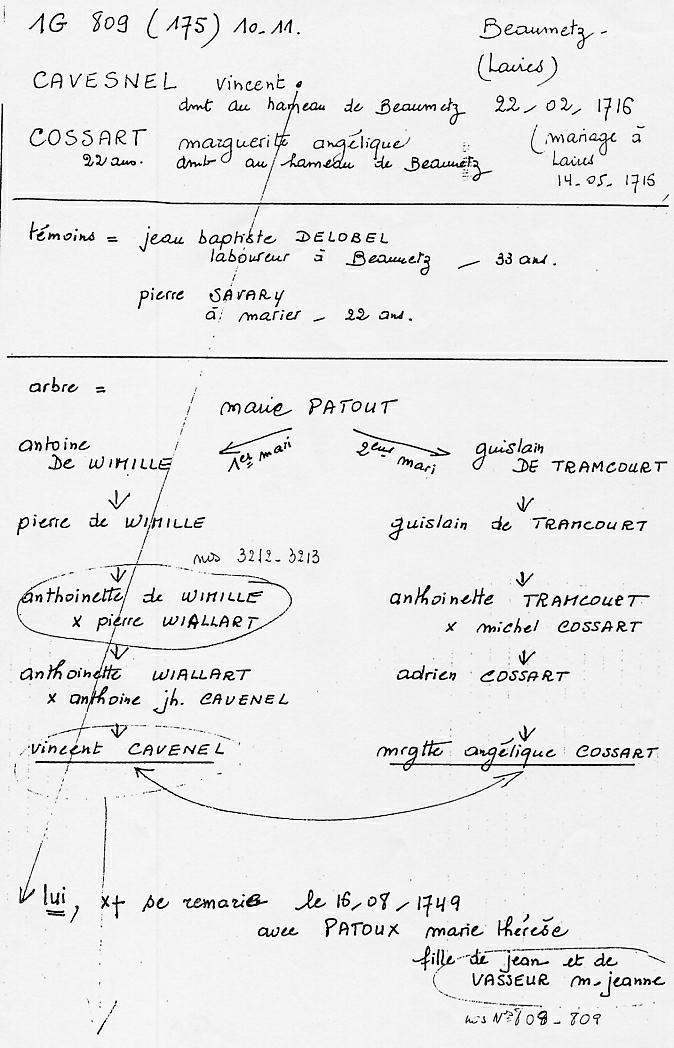 1G 809 (175) 10-11.
Beaumetz -
(Laires)
CAVESNEL vincent.
dmt au hameau de Beaumetz 22-02-1716
COSSART marguerite angélique (mariage à
22 ans. dmt au hameau de Beaumetz Laires
14-05-1716
témoins = jean baptiste DELOBEL
laboureur à Beaumetz - 33 ans.
pierre SAVARY
à marier - 22 ans.
arbre =
marie PATOUT
antoine 1er mari 2eme mari guislain
De WIMILLE DE TRAMCOURT
pierre de WIMILLE guislain de TRAMCOURT
nos 3212-3213
anthoinette de WIMILLE anthoinette TRAMCOURT
x pierre WIALLART x michel COSSART
anthoinette WIALLART adrien COSSART
x anthoine jh. CAVENEL
vincent CAVENEL mrgtte angélique COSSART
lui, x+ se remarie le 16/08/1749
avec PATOUX marie thérèse
fille de jean et de
VASSEUR m-jeanne
nos N° 808-809